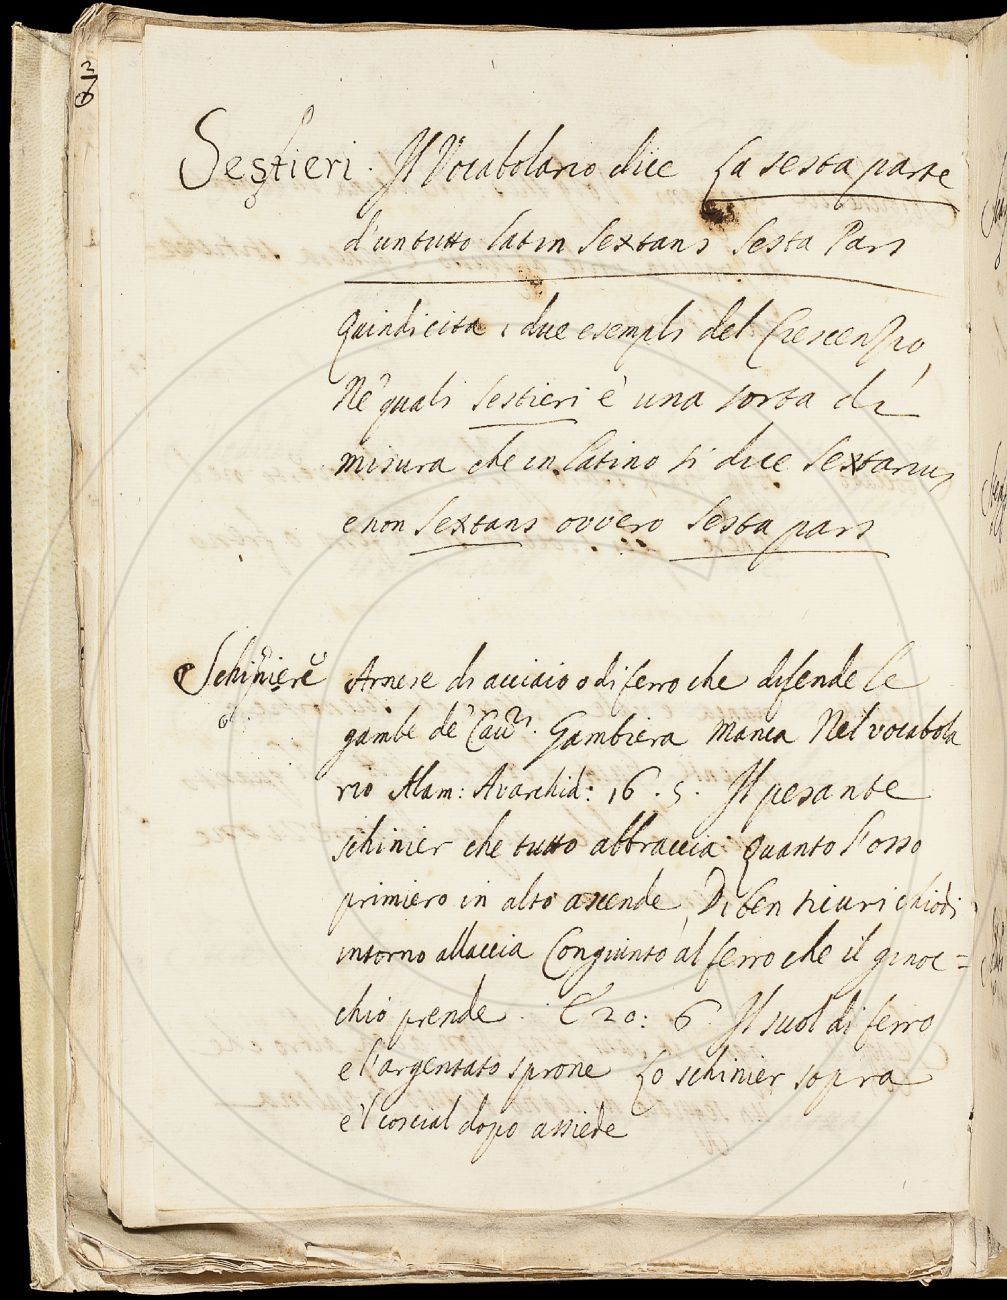 Sestieri. Il Vocabolario dice La sesta parte
d'un tutto lat in Sextans Sesta Pars
Quindi cita i due esempli del Crescenzio,
Ne' quali sestieri è una sorta di
misura che in latino si dice Sextarius
e non Sextans ovvero Sesta pars
Schiniere Arnese di acciaio o di ferro che difende le
gambe de' Cavri. Gambiera manca Nel vocabola
rio Alam: Avarchid: 16. 5. Il pesante
schinier che tutto abbraccia Quanto l'osso
primiero in alto ascende, Di ben sicuri chiodi
intorno allaccia Congiunto al ferro che il ginoc=
chio prende. E 20: 6. Il suol di ferro
e l'argentato sprone Lo schinier sopra
e 'l coscial dopo assiede